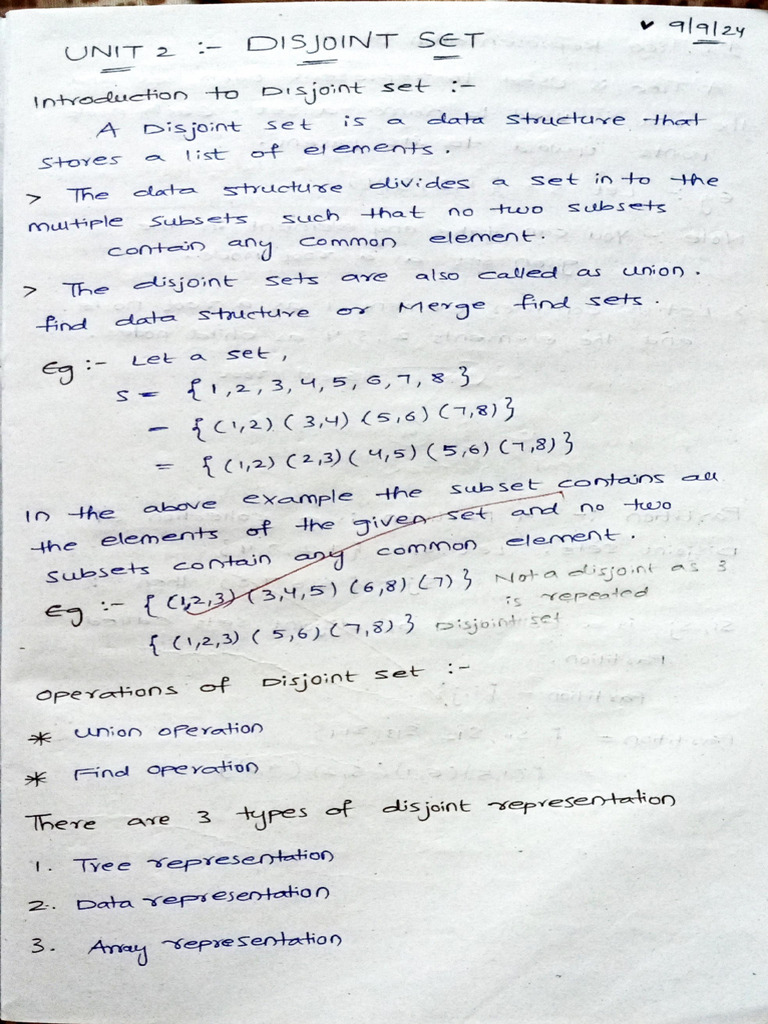 ✓ 9/9/24
UNIT 2 :- DISJOINT SET
Introduction to Disjoint set :-
A Disjoint set is a data structure that
stores a list of elements.
> The data structure divides a set in to the
multiple subsets such that no two subsets
contain any common element.
> The disjoint sets are also called as union.
find data structure or Merge find sets.
Eg :- Let a set,
S = {1,2,3,4,5,6,7,8}
- {(1,2) (3,4) (5,6) (7,8)}
= {(1,2) (2,3) (4,5) (5,6) (7,8)}
In the above example the subset contains all
the elements of the given set and no two
subsets contain any common element.
Eg :- {(1,2,3) (3,4,5) (6,8) (7)} Not a disjoint as 3
is repeated
{(1,2,3) (5,6) (7,8)} Disjoint set
Operations of Disjoint set :-
* Union operation
* Find operation
There are 3 types of disjoint representation
1. Tree representation
2. Data representation
3. Array representation